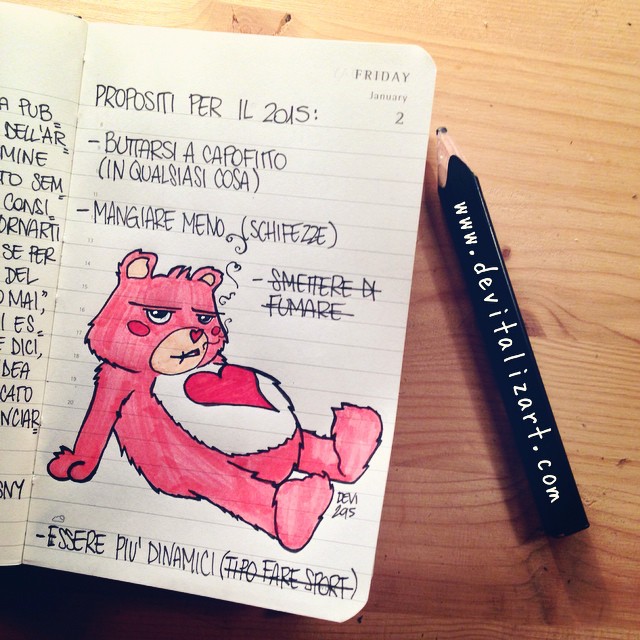 A PUB=
DELL'AR=
MINE
TO SEM=
CONSI=
ORNARTI
SE PER
DEL
O MAI,"
I ES=
E DICI,
DEA
CATO
NCIAR
SNY
FRIDAY
January
2
PROPOSITI PER IL 2015:
- BUTTARSI A CAPOFITTO
(IN QUALSIASI COSA)
- MANGIARE MENO (SCHIFEZZE)
- SMETTERE DI
FUMARE
DEVI
2915
- ESSERE PIU' DINAMICI (TIPO FARE SPORT)
www.devitalizart.com